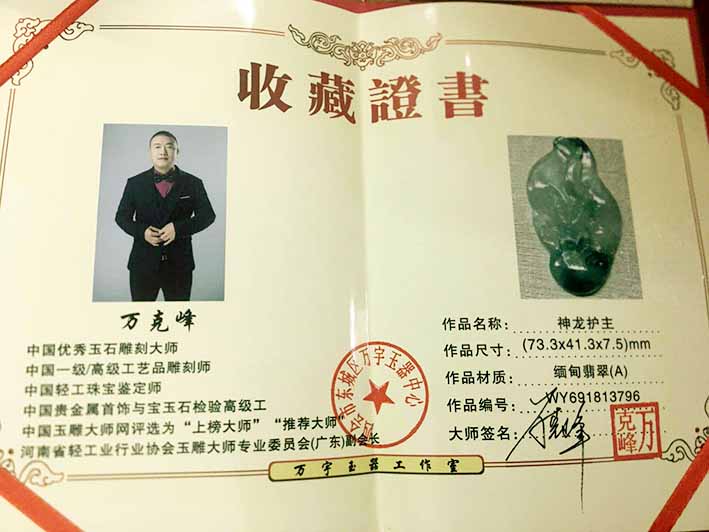 收藏證書
万克峰
中国优秀玉石雕刻大师
中国一级/高级工艺品雕刻师
中国轻工珠宝鉴定师
中国贵金属首饰与宝玉石检验高级工
中国玉雕大师网评选为“上榜大师”“推荐大师”
河南省轻工业行业协会玉雕大师专业委员会(广东)副会长
作品名称: 神龙护主
作品尺寸: (73.3x41.3x7.5)mm
作品材质: 缅甸翡翠(A)
作品编号: WY691813796
大师签名:
万克峰
会市东城区万宇玉器中心
万宇玉器工作室